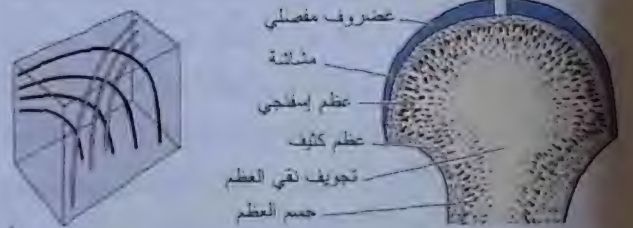 غضروف مفصلي
مشاشة
عظم إسفنجي
عظم كثيف
تجويف نقي العظم
جسم العظم